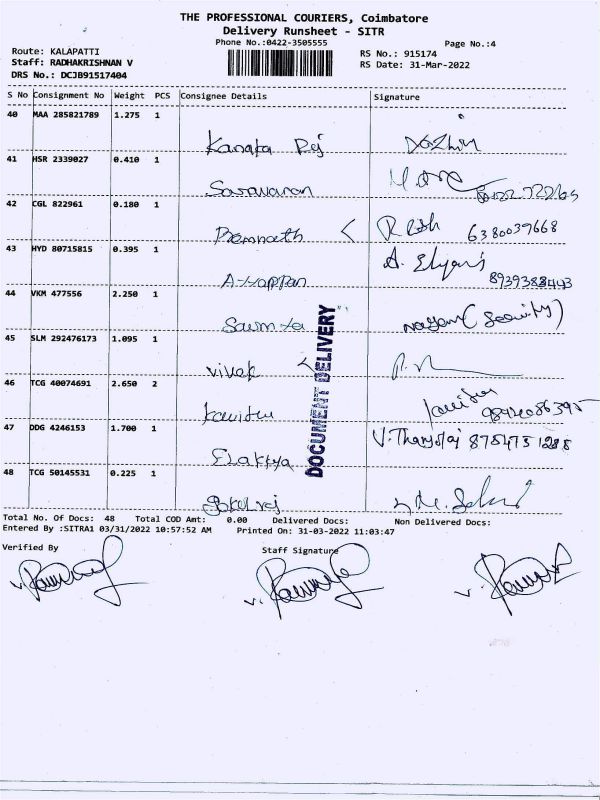 THE PROFESSIONAL COURIERS, Coimbatore
Delivery Runsheet - SITR
Phone No.:0422-3505555
Page No.:4
Route: KALAPATTI
Staff: RADHAKRISHNAN V
DRS No.: DCJB91517404
RS No.: 915174
RS Date: 31-Mar-2022
S No Consignment No Weight PCS Consignee Details Signature
40 MAA 285821789 1.275 1
41 HSR 2339027 0.410 1
Saravanan
42 CGL 822961 0.180 1
Premnath < 6380039668
43 HYD 80715815 0.395 1
A-yappan
44 VKM 477556 2.250 1
Sowmya (Security)
45 SLM 292476173 1.095 1
Vivek <
46 TCG 40074691 2.650 2
Kavitha
47 DDG 4246153 1.700 1
Elakkya
48 TCG 50145531 0.225 1
Gokulraj
DOCUMENT DELIVERY
Total No. Of Docs: 48 Total COD Amt: 0.00 Delivered Docs: Non Delivered Docs:
Entered By :SITRA1 03/31/2022 10:57:52 AM Printed On: 31-03-2022 11:03:47
Verified By Staff Signature